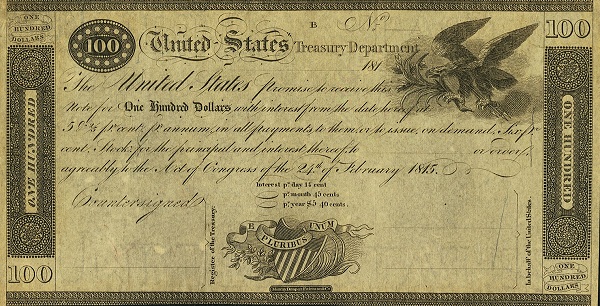 ONE
HUNDRED
DOLLARS
100
B No
United States Treasury Department
181
100
The United States promise to receive this
Note for One Hundred Dollars with interest from the date hereof at
5 2/5 pr cent. pr annum, in all payments to them, or to issue, on demand, Six pr
cent. Stock, for the principal and interest thereof, to or order,
agreeably to the Act of Congress of the 24th of February 1815.
Interest pr. day 1½ cent
pr. month 45 cents
pr. year $5 40 cents.
Countersigned
E PLURIBUS UNUM
Register of the Treasury.
In behalf of the United States.
ONE HUNDRED
ONE HUNDRED
100
ONE
HUNDRED
DOLLARS